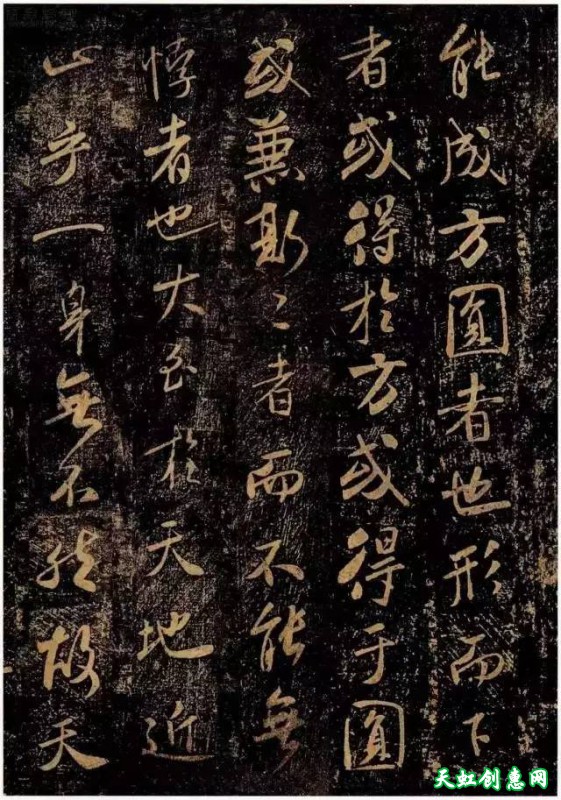 能成方圓者也形而下
者或得於方或得于圓
或兼斯二者而不能無
悖者也大至於天地近
止乎一身無不然故天
天虹创惠网